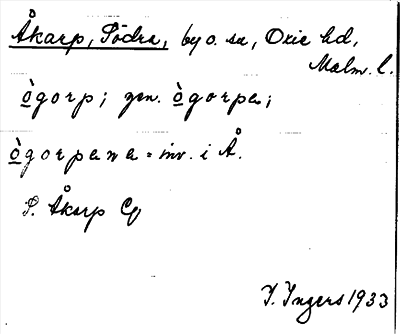 Åkarp, Södra, by o. sn, Oxie hd,
Malm. l.
ògorp; gen. ògorpa;
ògorpana = inv. i Å.
S. Åkarp
I. Ingers 1933